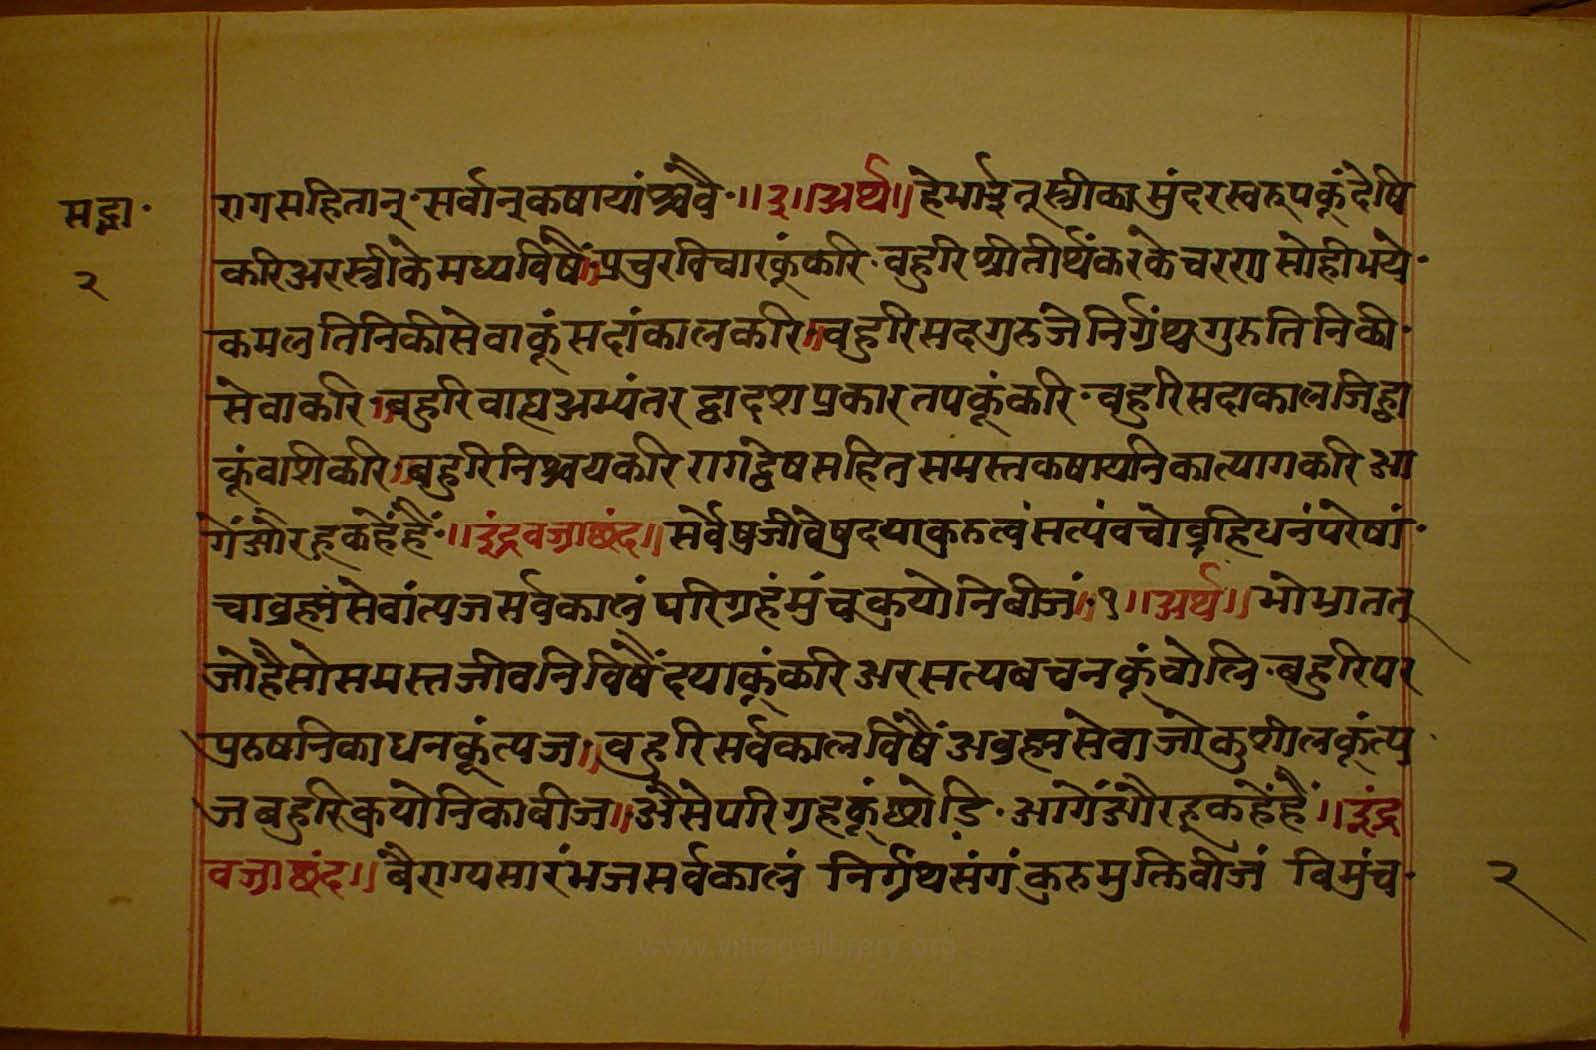 सद्भा॰
२
रागसहितान्॰सर्वान्कषायांश्चवै॰॥३॥अर्थ॥हेभाईतूस्त्रीकासुंदरस्वरूपकूंदेषि
करिअरस्त्रीकेमध्यविषैं॥प्रचुरविचारकूंकरि॰बहुरिश्रीतीर्थंकरकेचरणसोहीभये॰
कमलतिनिकीसेवाकूंसदांकालकरि॥बहुरिसदगुरुजेनिर्ग्रंथगुरुतिनिकी॰
सेवाकरि॥बहुरिवाह्यअभ्यंतरद्वादशप्रकारतपकूंकरि॰बहुरिसदाकालजिह्वा
कूंवाशिकरि॥बहुरिनिश्चयकरिरागद्वेषसहितसमस्तकषायनिकात्यागकरिआ
गेंऔरहूकहेंहैं॰॥इंद्रवज्राछंद॥सर्वेषुजीवेषुदयाकुरुत्वंसत्यंवचोब्रूहिधनंपरेषां॰
चाब्रह्मंसेवांत्यजसर्वकालंपरिग्रहंमुंचकुयोनिबीजं॥१॥अर्थ॥भोभ्राततू
जोहैसोसमस्तजीवनिविषैंदयाकूंकरिअरसत्यबचनकूंवोलि॰बहुरिपर
पुरुषनिकाधनकूंत्यज॥वहुरिसर्वकालविषैंअब्रह्मसेवाजोकुशीलकूंत्य
जबहुरिकुयोनिकावीज॥ऐसेपरिग्रहकूंछोडि॰आगेंऔरहूकहेंहैं॥इंद्र
वज्राछंद॥बैराग्यसारंभजसर्वकालं निर्ग्रंथसंगंकुरुमुक्तिवीजं विमुंच॰
२
www.vitragelibrary.org